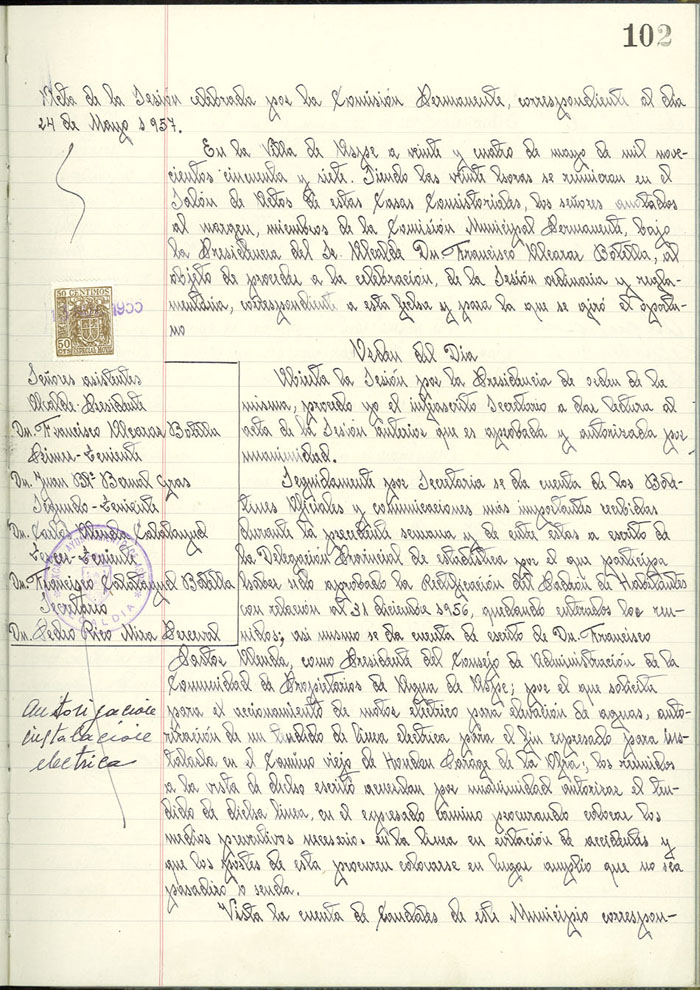 102
Acta de la Sesión celebrada por la Comisión Permanente, correspondiente al dia
24 de Mayo 1957.
En la Villa de Aspe a veinte y cuatro de mayo de mil nove-
cientos cincuenta y siete. Siendo las veinte horas se reunieron en el
Salón de Actos de estas Casas Consistoriales, los señores anotados
al margen, miembros de la Comisión Municipal Permanente, bajo
la Presidencia del Sr. Alcalde Dn. Francisco Alcaraz Botella, al
objeto de proceder a la celebración, de la Sesión ordinaria y regla-
mentaria, correspondiente a esta fecha y para la que se giró el oportu-
no
Orden del Dia
50 CENTIMOS
1955
50 CTS
ESPECIAL MOVIL
Señores asistentes
Alcalde-Presidente
Dn. Francisco Alcaraz Botella
Primer-Teniente
Dn. Juan Bta. Bernal Gras
Segundo-Teniente
Dn. Calatayud
Tercer-Teniente
Dn. Francisco Calatayud Botella
Secretario
Dn. Pedro Pico Mira Perceval
ALCALDIA
Abierta la Sesión por la Presidencia de orden de la
misma, procedo yo el infrascrito Secretario a dar lectura al
acta de la Sesión anterior que es aprobada y autorizada por
unanimidad.
Seguidamente por Secretaria se da cuenta de los Bole-
tines Oficiales y comunicaciones más importantes recibidas
durante la precedente semana y de entre estas a escrito de
la Delegación Provincial de estadistica por el que participa
haber sido aprobada la Rectificación del Padrón de Habitantes
con relación al 31 diciembre 1956, quedando enterados los reu-
nidos; asi mismo se da cuenta de escrito de Dn. Francisco
Pastor Alenda, como Presidente del Consejo de Administración de la
Comunidad de Propietarios de Agua de Aspe; por el que solicita
para el accionamiento de motor electrico para elevación de aguas, auto-
rización de un tendido de linea electrica para el fin expresado para ins-
talarla en el Camino viejo de Hondon Parage de la Ofra; los reunidos
a la vista de dicho escrito acuerdan por unanimidad autorizar el ten-
dido de dicha linea, en el expresado camino procurando colocar los
medios preventivos necesario. en la linea en evitación de accidentes y
que los postes de esta procuren colocarse en lugar amplio que no sea
pasadizo o senda.
autorizacion
instalacion
electrica
Vista la cuenta de Caudales de este Municipio correspon-